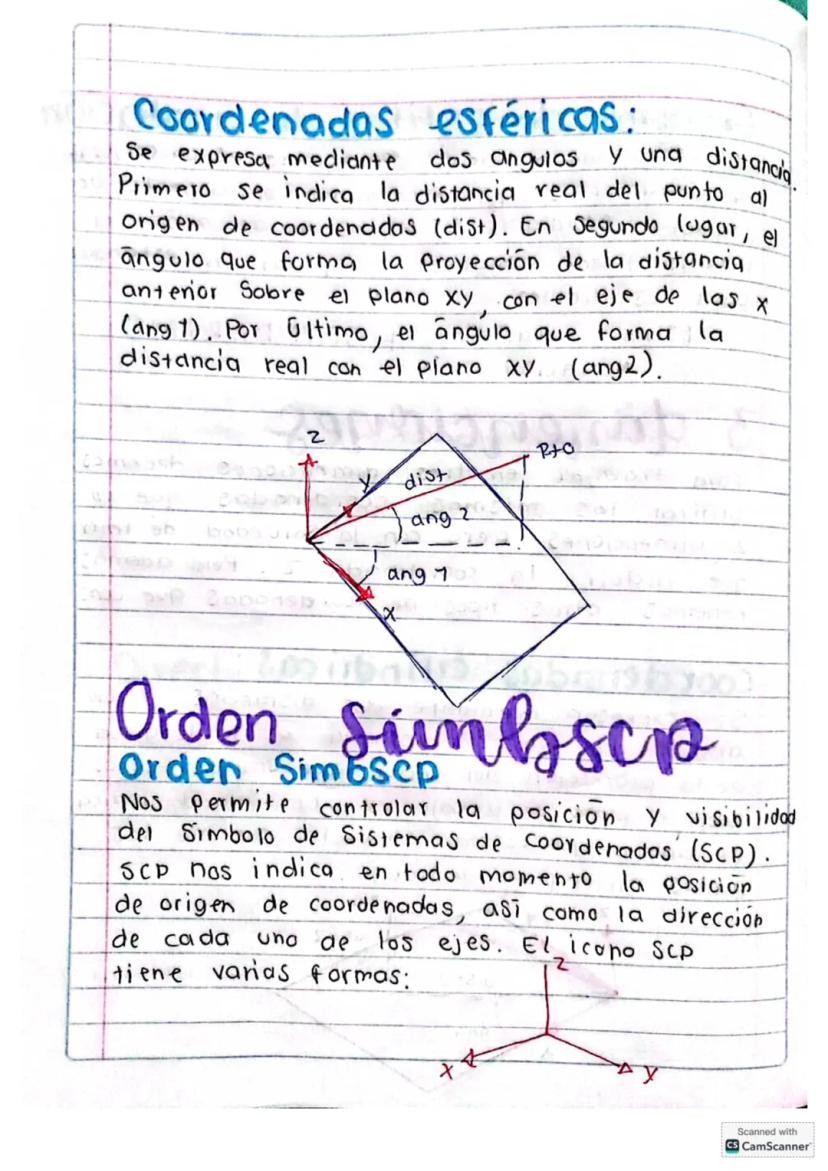 Coordenadas esféricas:
Se expresa mediante dos angulos y una distancia.
Primero se indica la distancia real del punto al
origen de coordenadas (dist). En Segundo lugar, el
ángulo que forma la proyección de la distancia
anterior Sobre el plano XY, con el eje de las x
(ang 1). Por Último, el ángulo que forma la
distancia real con el plano XY. (ang2).
Z
Pto
Y
dist
ang 2
ang 1
X
Orden Simbscp
Orden SimbScp
Nos permite controlar la posición y visibilidad
del Simbolo de Sistemas de coordenadas (SCP).
SCP nos indica en todo momento la posición
de origen de coordenadas, así como la dirección
de cada uno de los ejes. El icono SCP
tiene varias formas:
Z
X
Y
Scanned with
CS CamScanner